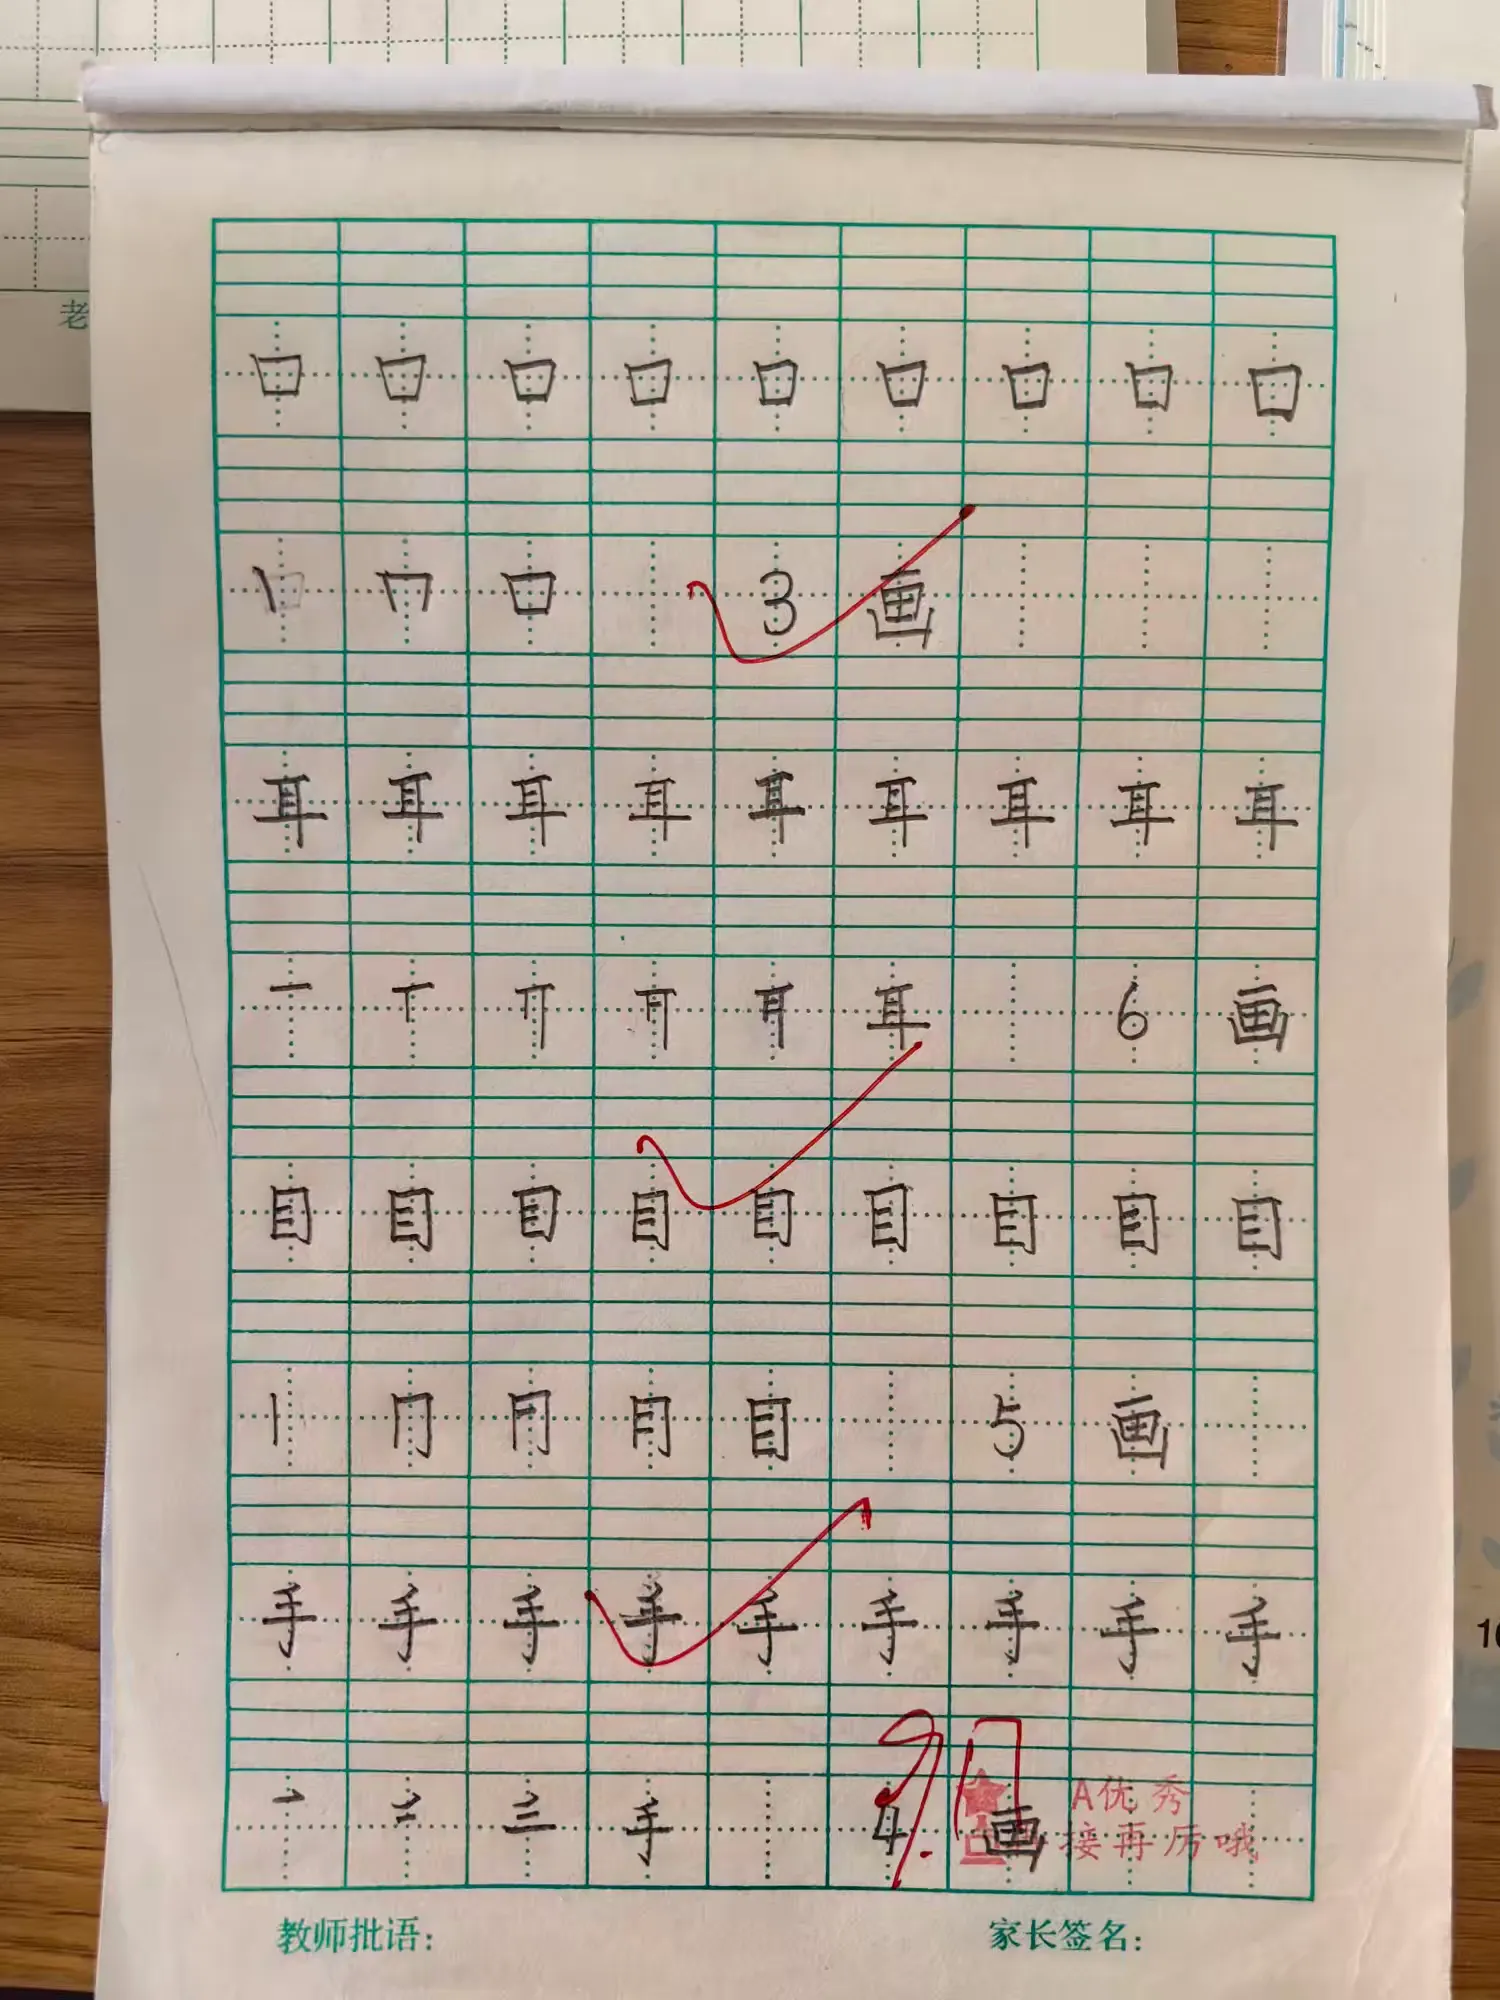 老
口 口 口 口 口 口 口 口 口
丨 冂 口 3 画
耳 耳 耳 耳 耳 耳 耳 耳 耳
一 丅 耳 6 画
目 目 目 目 目 目 目 目 目
丨 冂 目 5 画
手 手 手 手 手 手 手 手 手
一 二 三 手 4 画
9.17
A优秀
接再厉哦
教师批语:
家长签名: